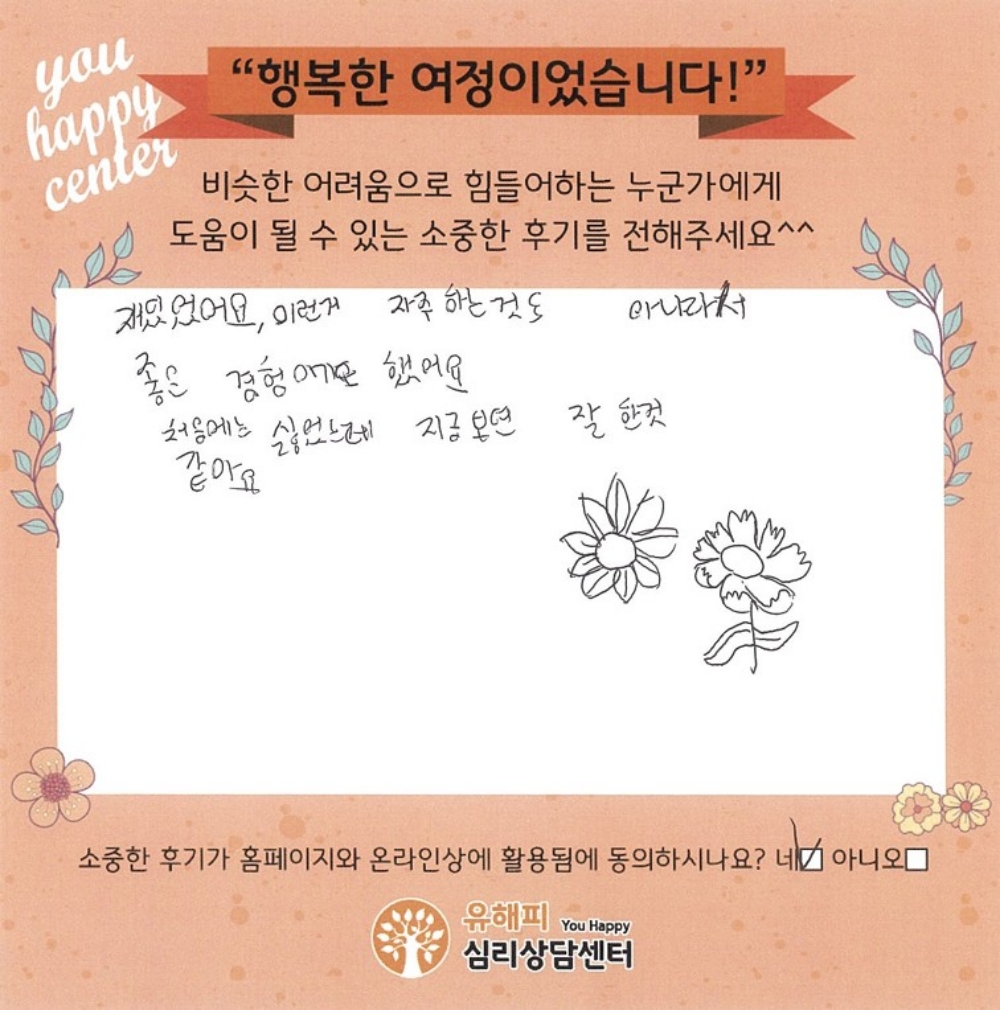 you
happy
center
“행복한 여정이었습니다!”
비슷한 어려움으로 힘들어하는 누군가에게
도움이 될 수 있는 소중한 후기를 전해주세요^^
재밌었어요, 이런게 자주 하는것도 아니라서
좋은 경험이기도 했어요
처음에는 싫었는데 지금보면 잘 한것
같아요
소중한 후기가 홈페이지와 온라인상에 활용됨에 동의하시나요? 네 아니오
유해피 You Happy
심리상담센터